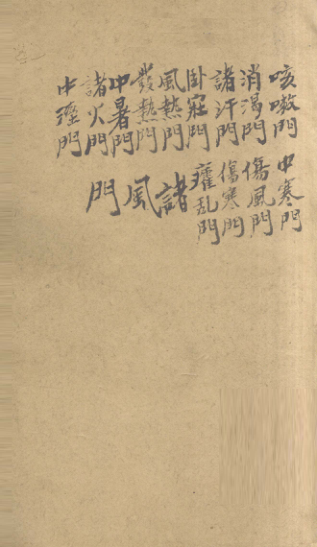 咳嗽門
消渴門
諸汗門
門
風熱門
發熱門
中暑門
諸火門
中溼門
中寒門
傷風門
傷寒門
癨乱門
諸風門